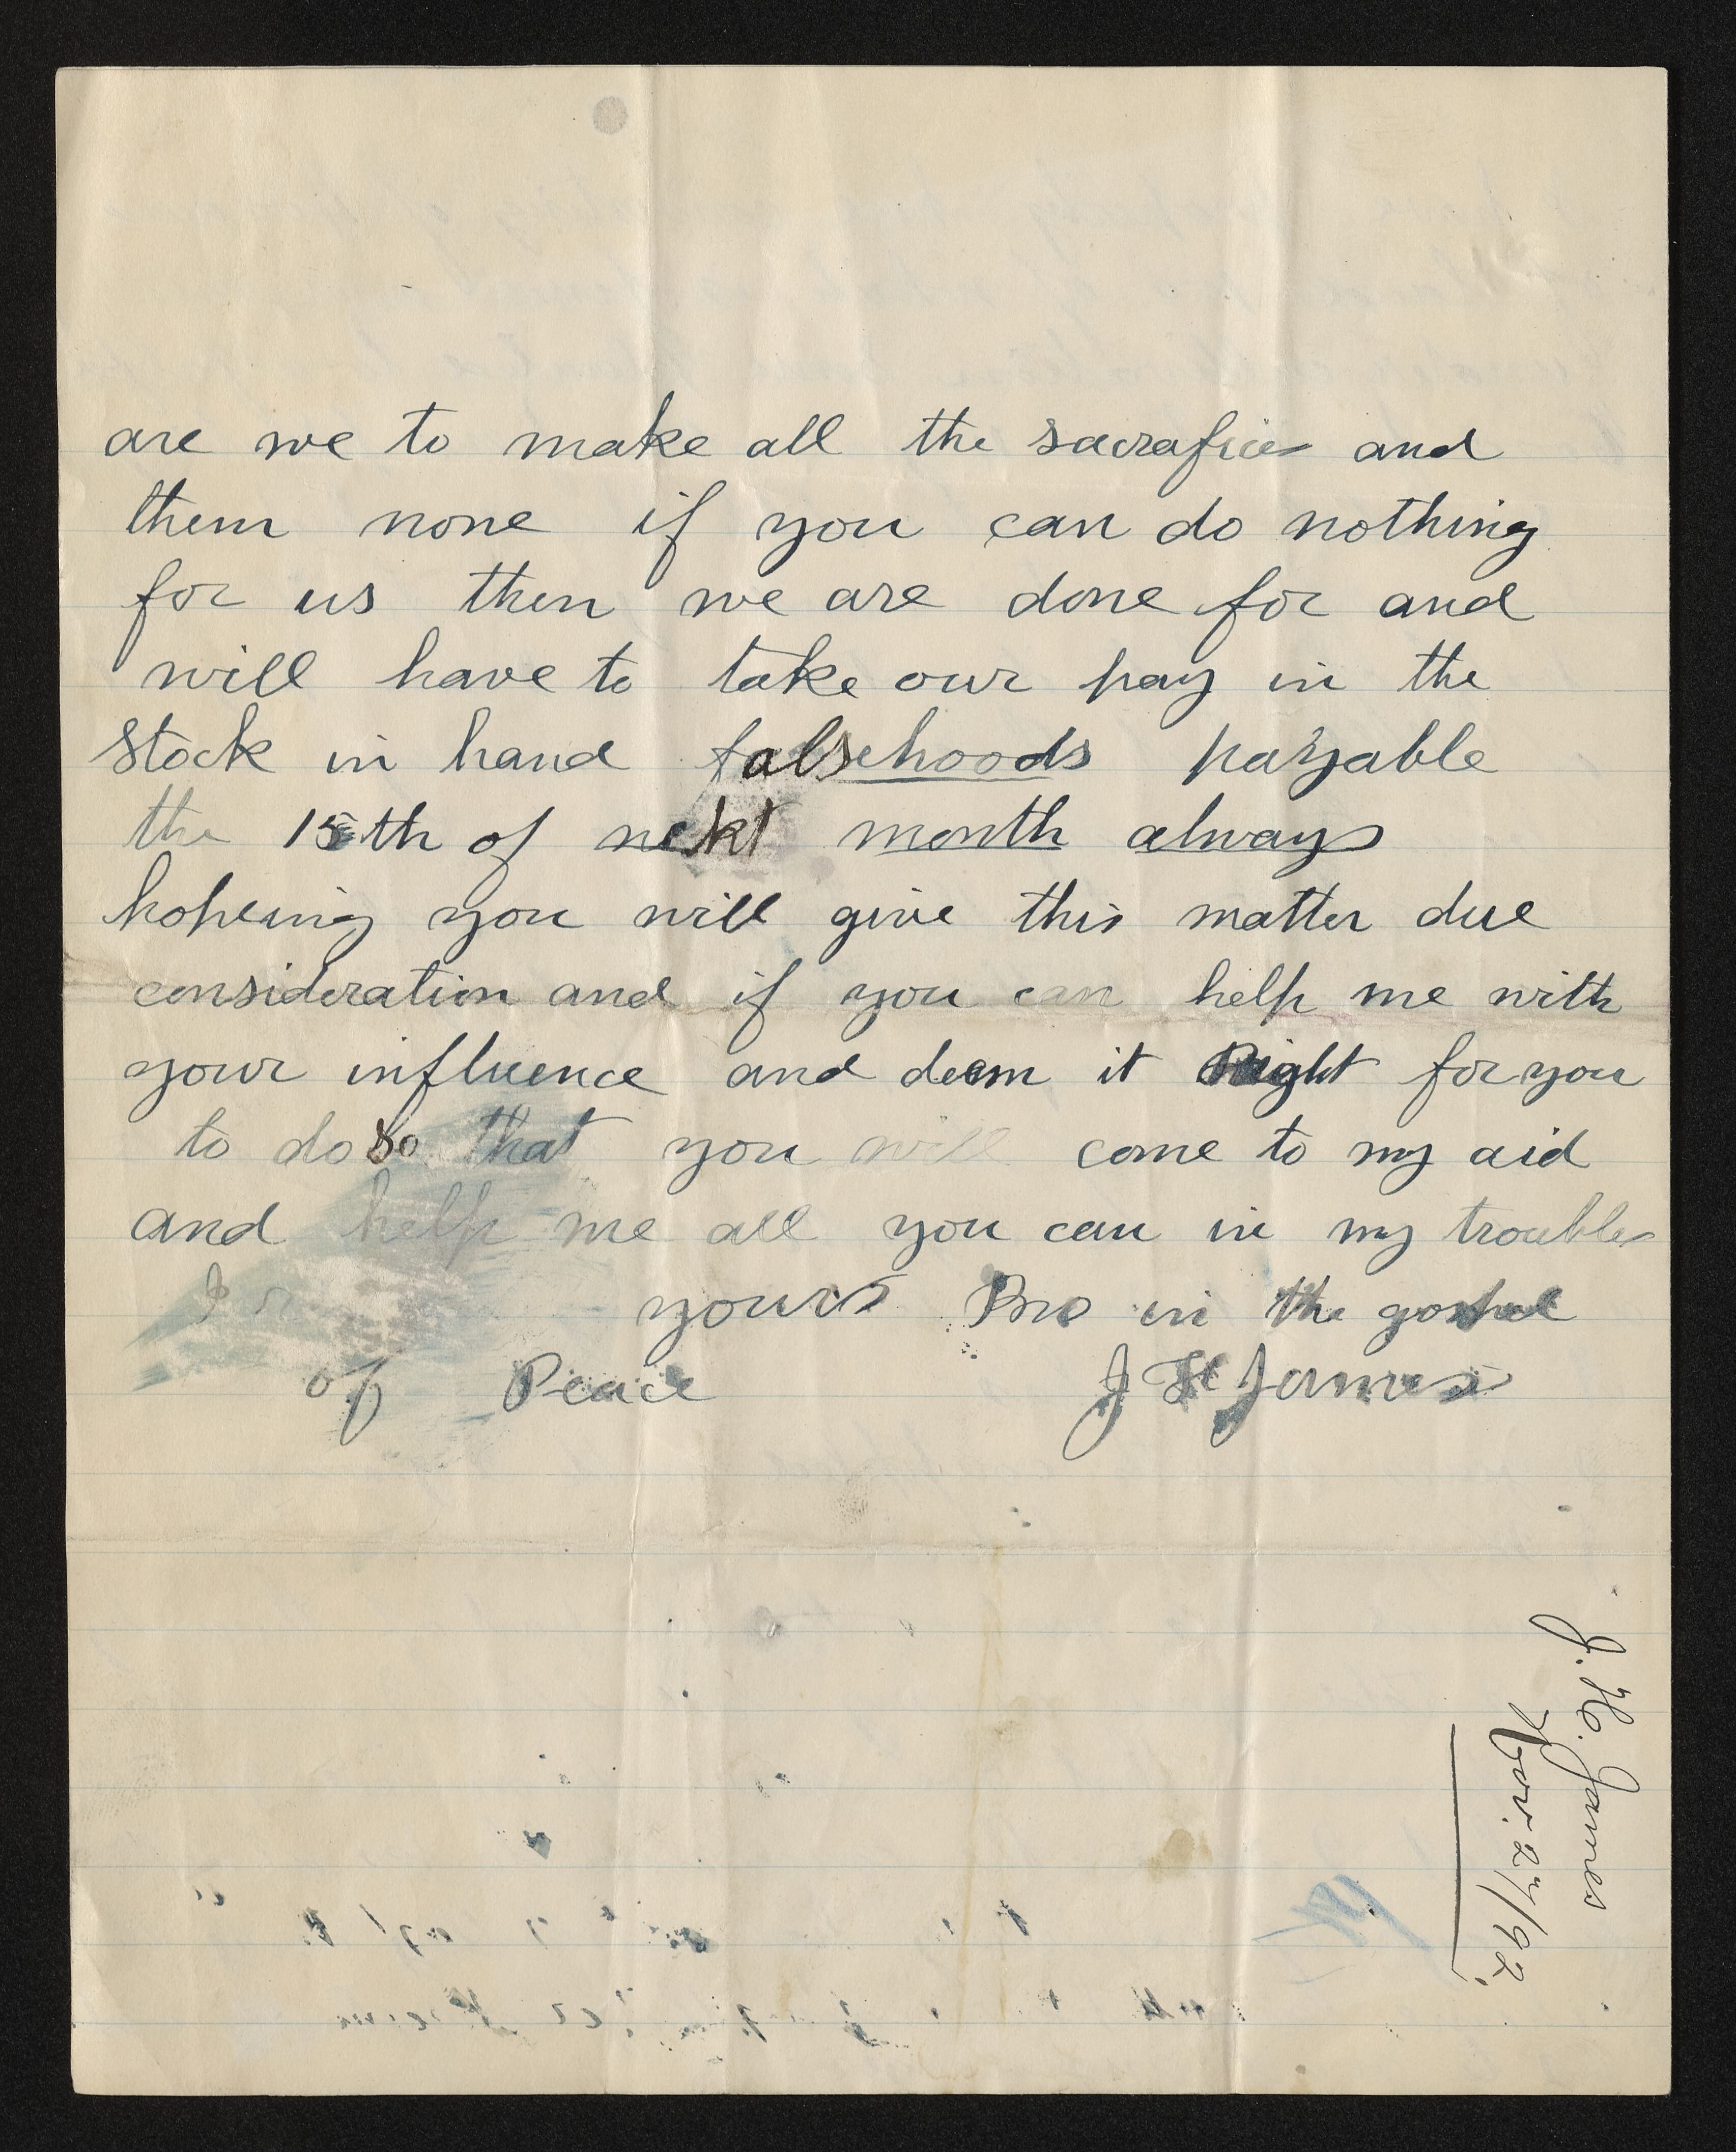 are we to make all the sacrafice and
them none if you can do nothing
for us then we are done for and
will have to take our pay in the
stock in hand falsehoods payable
the 15th of nekt month always
hopeing you will give this matter due
consideration and if you can help me with
your influence and deem it Right for you
to do so that you will come to my aid
and help me all you can in my trouble
yours Bro in the gospel
of Peace J H James
J. H. James
Nov. 27/92